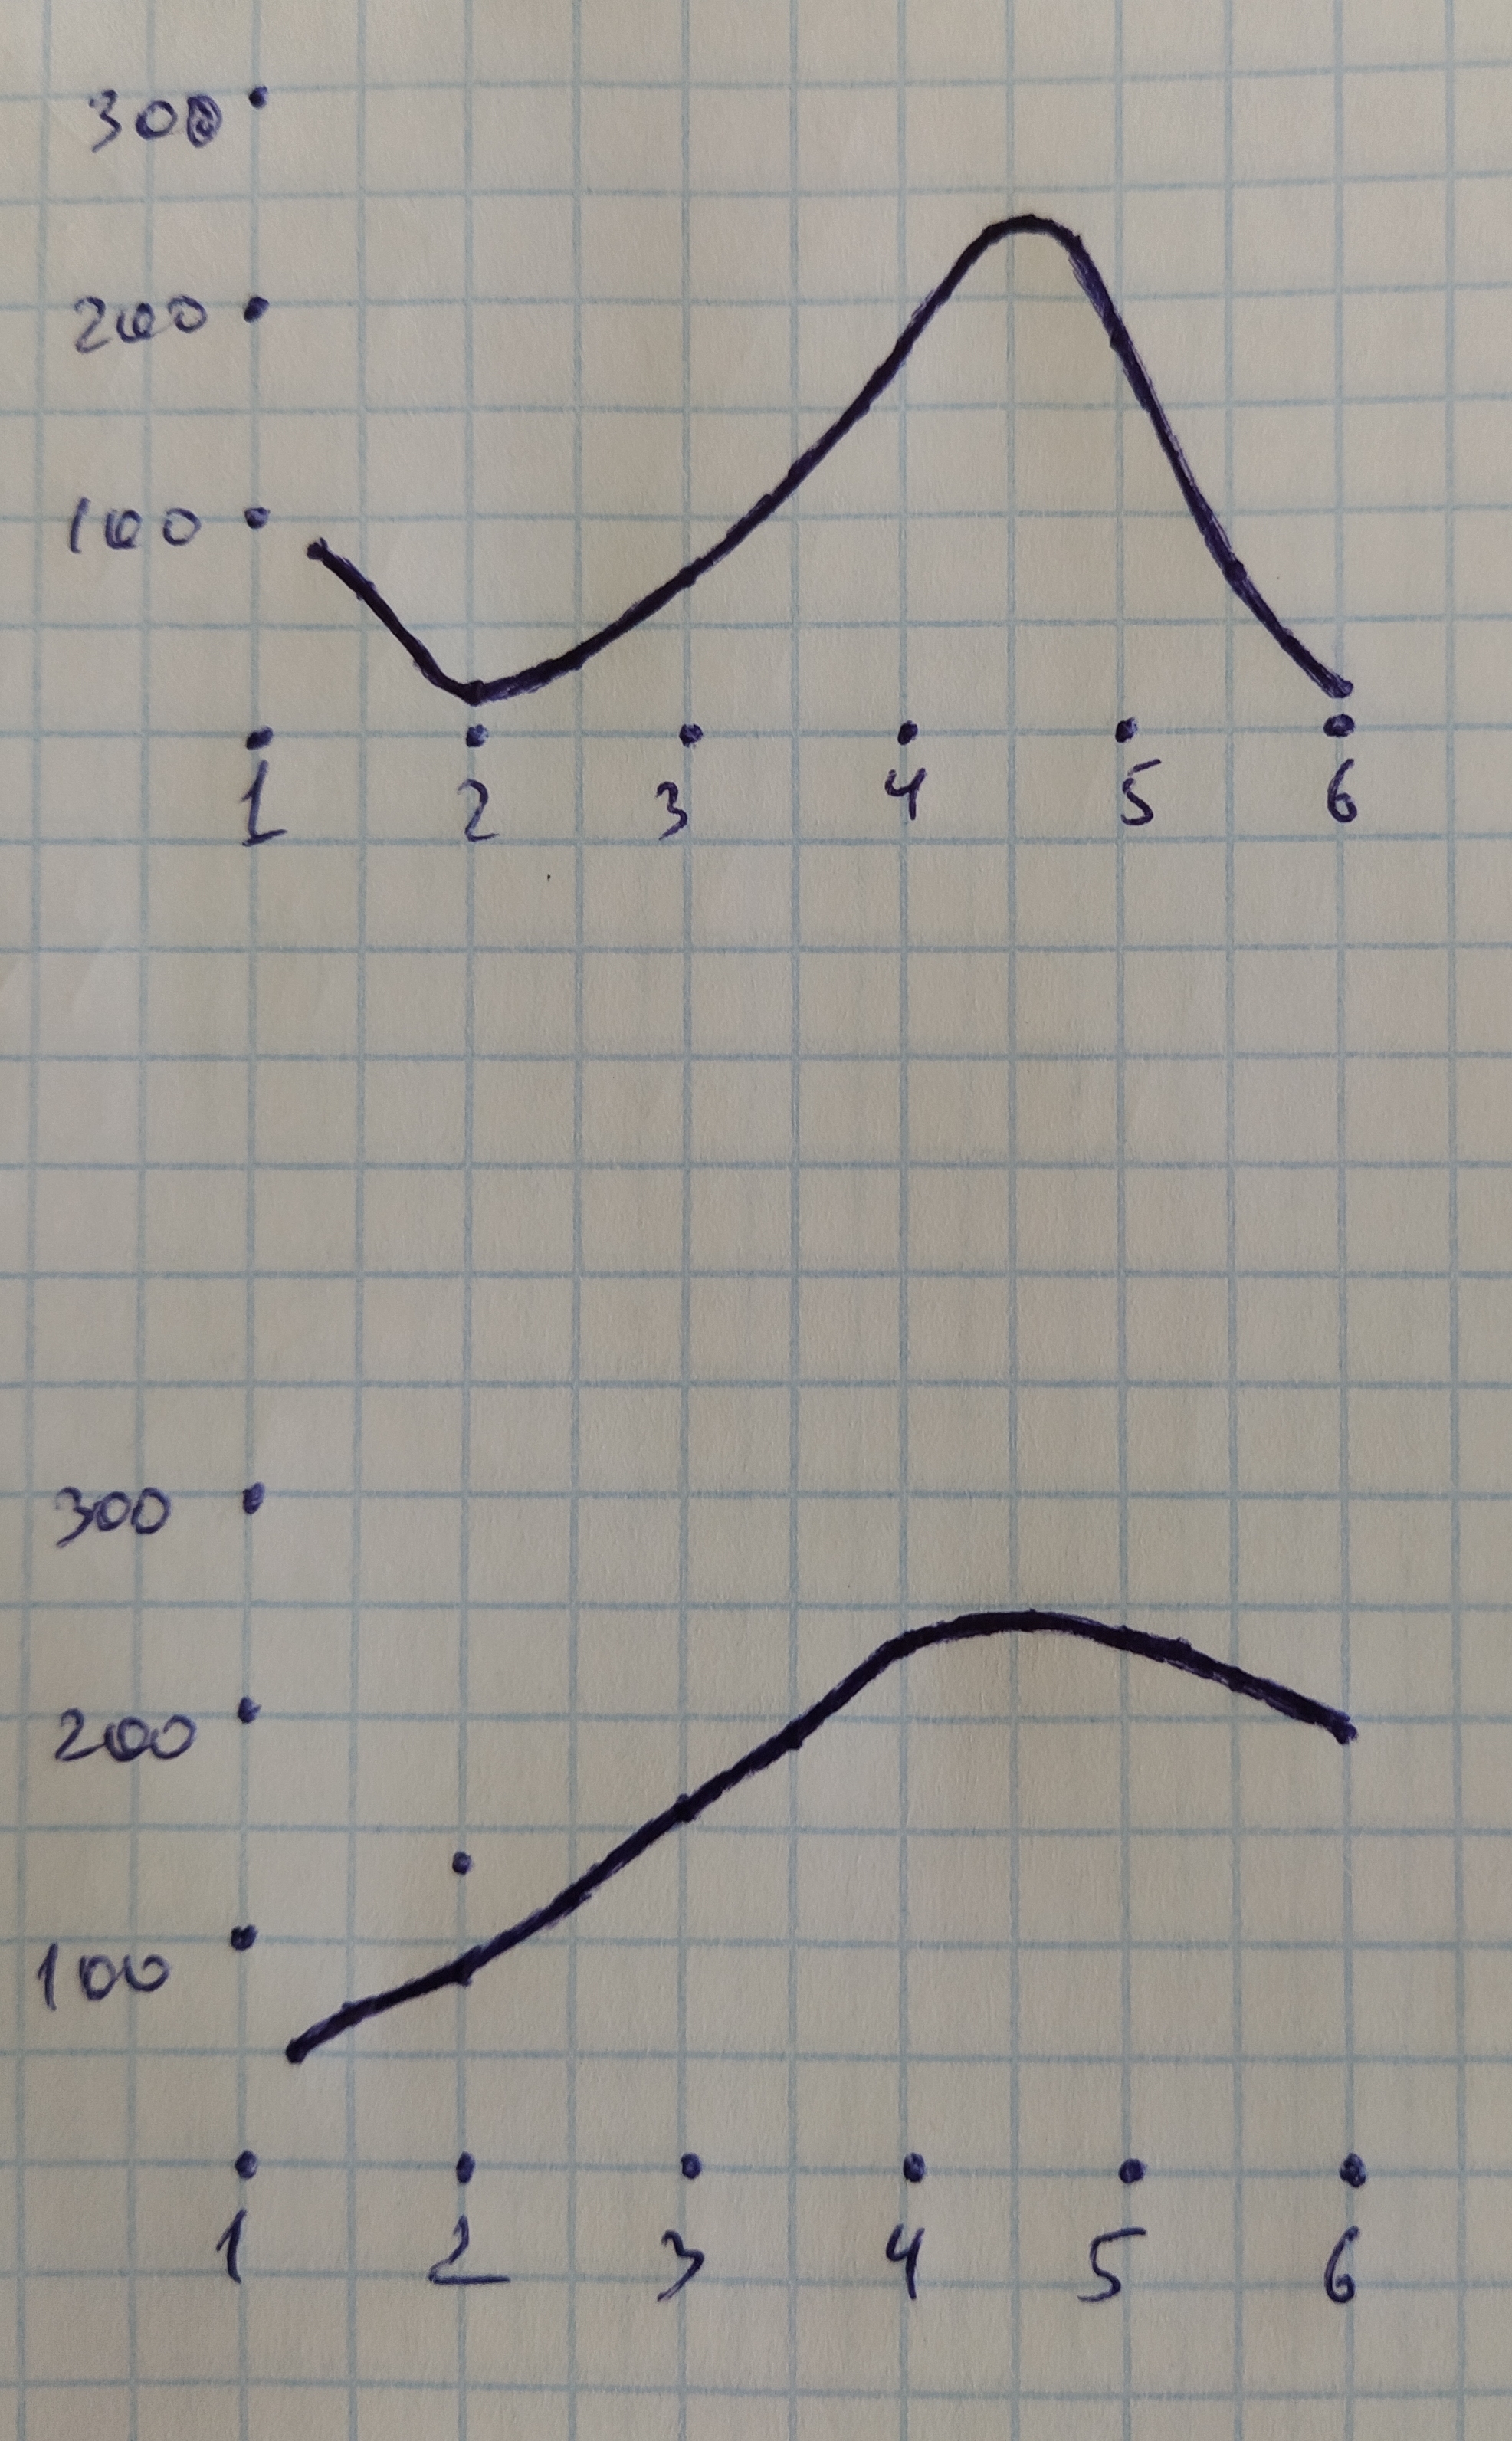 300
200
100
1 2 3 4 5 6
300
200
100
1 2 3 4 5 6